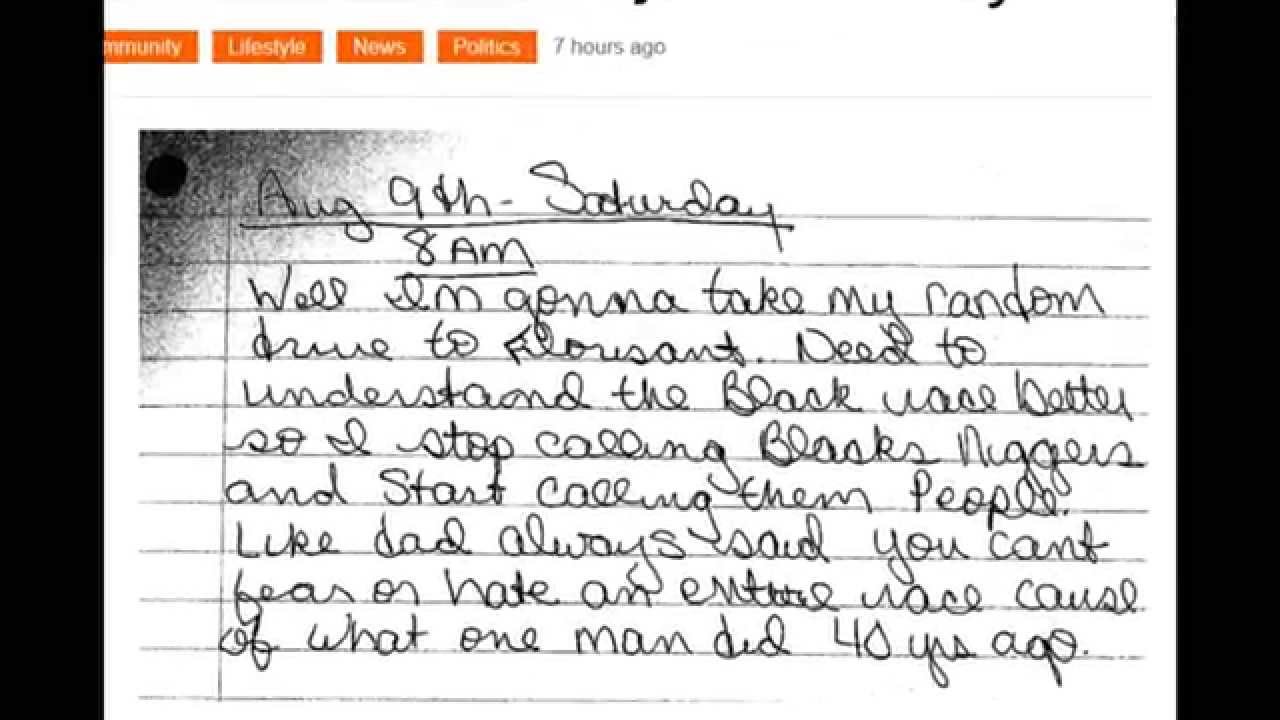 mmunity Lifestyle News Politics 7 hours ago
Aug 9th - Saturday
8 AM
Well I'm gonna take my random
drive to Florisant. Need to
understand the Black race better
so I stop calling Blacks Niggers
and Start calling them People.
Like dad always said you cant
fear or hate an entire race cause
of what one man did 40 yrs ago.